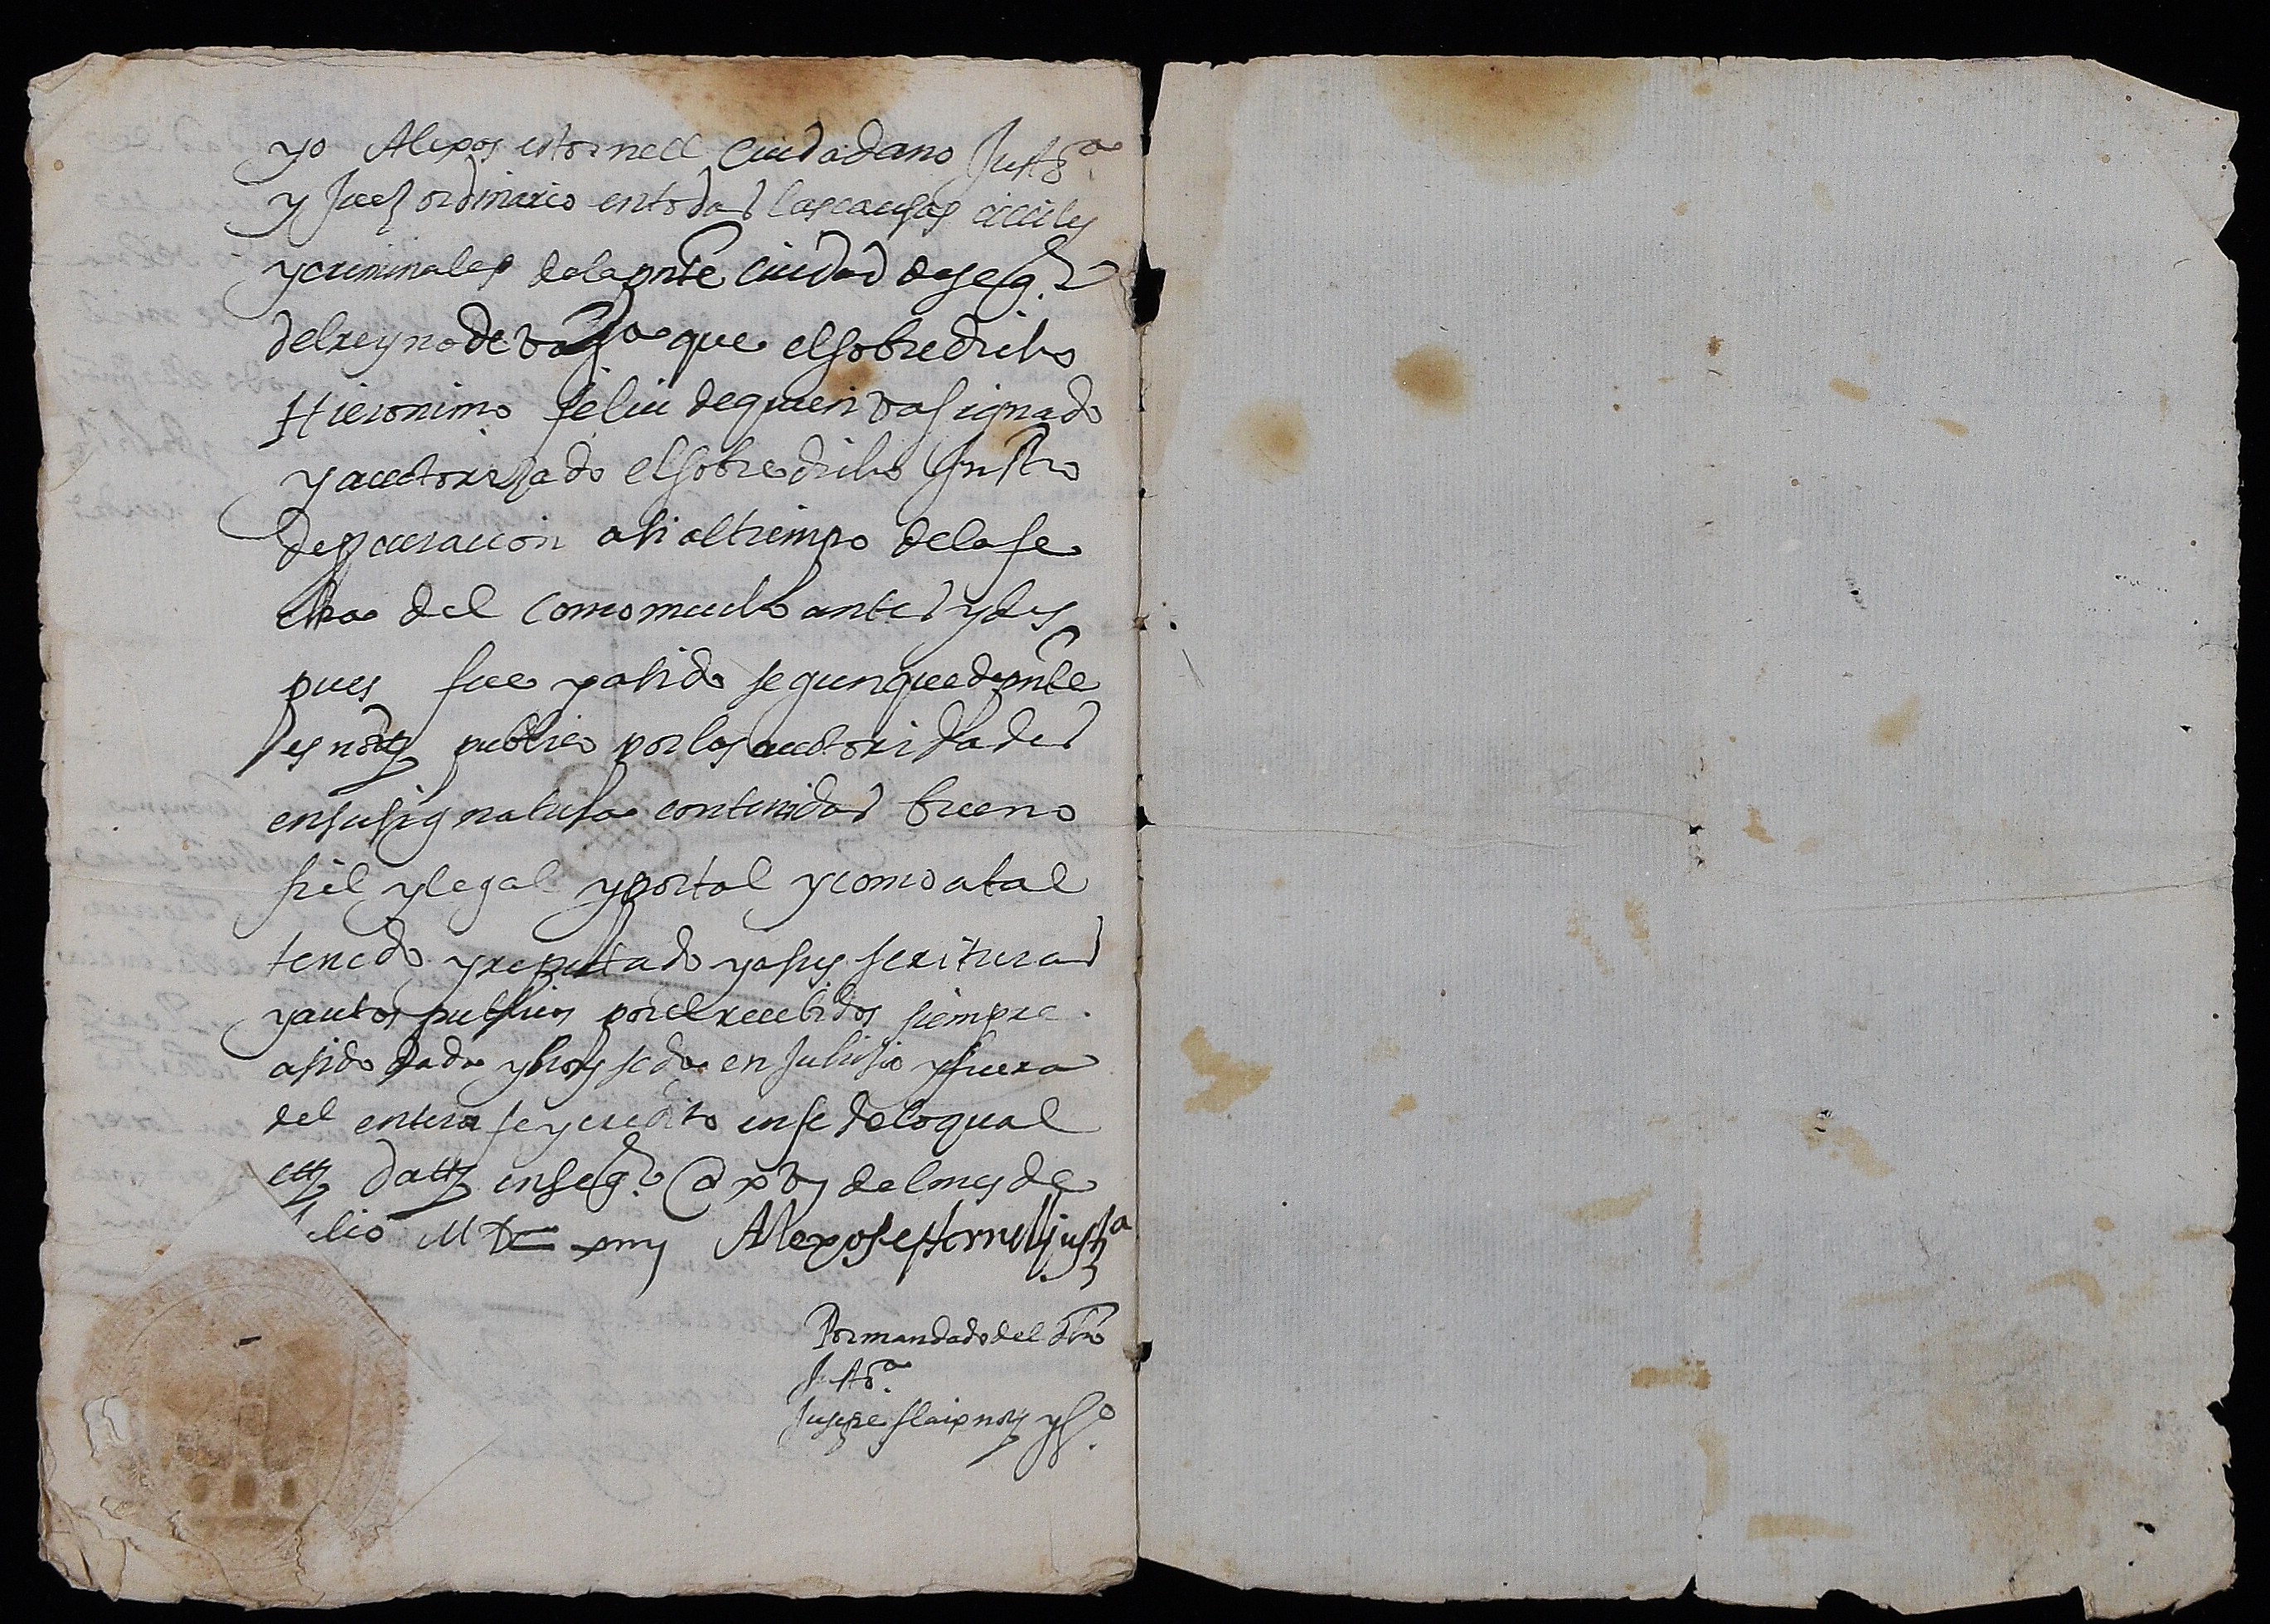 yo Alexos estornell Ciudadano Justª
y Juez ordinario en todas las causas ciuiles
y criminales de la pnte Ciudad de seg.e
del reyno de Valª que el sobredicho
Hieronimo feliu de quien va signado
y auctorizado el sobredicho Instro
de procuracion asi al tiempo de la fe
cha del como mucho antes y des
pues fue y a sido segun que de pnte
es notº publico por las auctoridades
en su signatura contenidas bueno
fiel y legal y por tal y como a tal
tenido y reputado y a sus scrituras
y autos publicos por el recebidos siempre
a sido dada y hoy se da en Juhisio y fuera
del entera fe y credito en fe de lo qual
ett datt en seg.e a xv del mes de
lio MDC Alexos estornell justª
Por mandado del dho
Justª.
Jusepe flaix noty